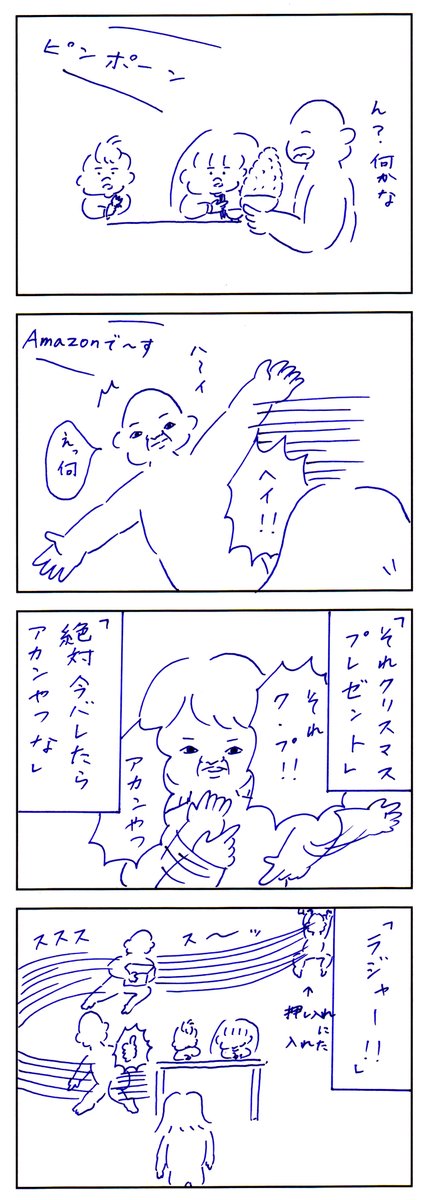 ピンポーン
ん?何かな
Amazonで〜す
ハ〜イ
えっ何
ヘイ!!
「それクリスマス
プレゼント」
それ
ク・プ!!
アカンやつ
「絶対今バレしたら
アカンやつな」
「ラジャー!!」
スススス
ス〜ッ
↑
押し入れ
に
入れた